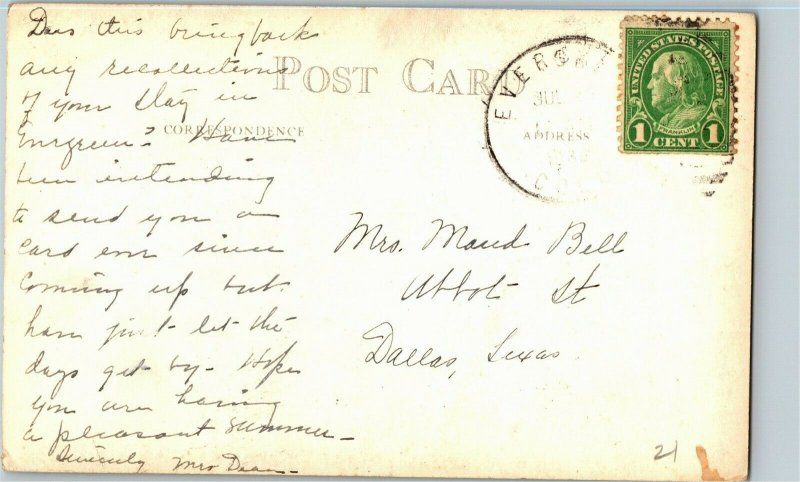 Does this bring back
any recollections
of your stay in
Evergreen? Have
been intending
to send you a
card ever since
coming up but
have just let the
days get by - Hope
you are having
a pleasant summer -
Sincerely Mrs
POST CARD
CORRESPONDENCE
ADDRESS
EVERGR
JUL
UNITED STATES POSTAGE
FRANKLIN
1 CENT 1
Mrs. Maud Bell
Abbot St
Dallas, Texas
21